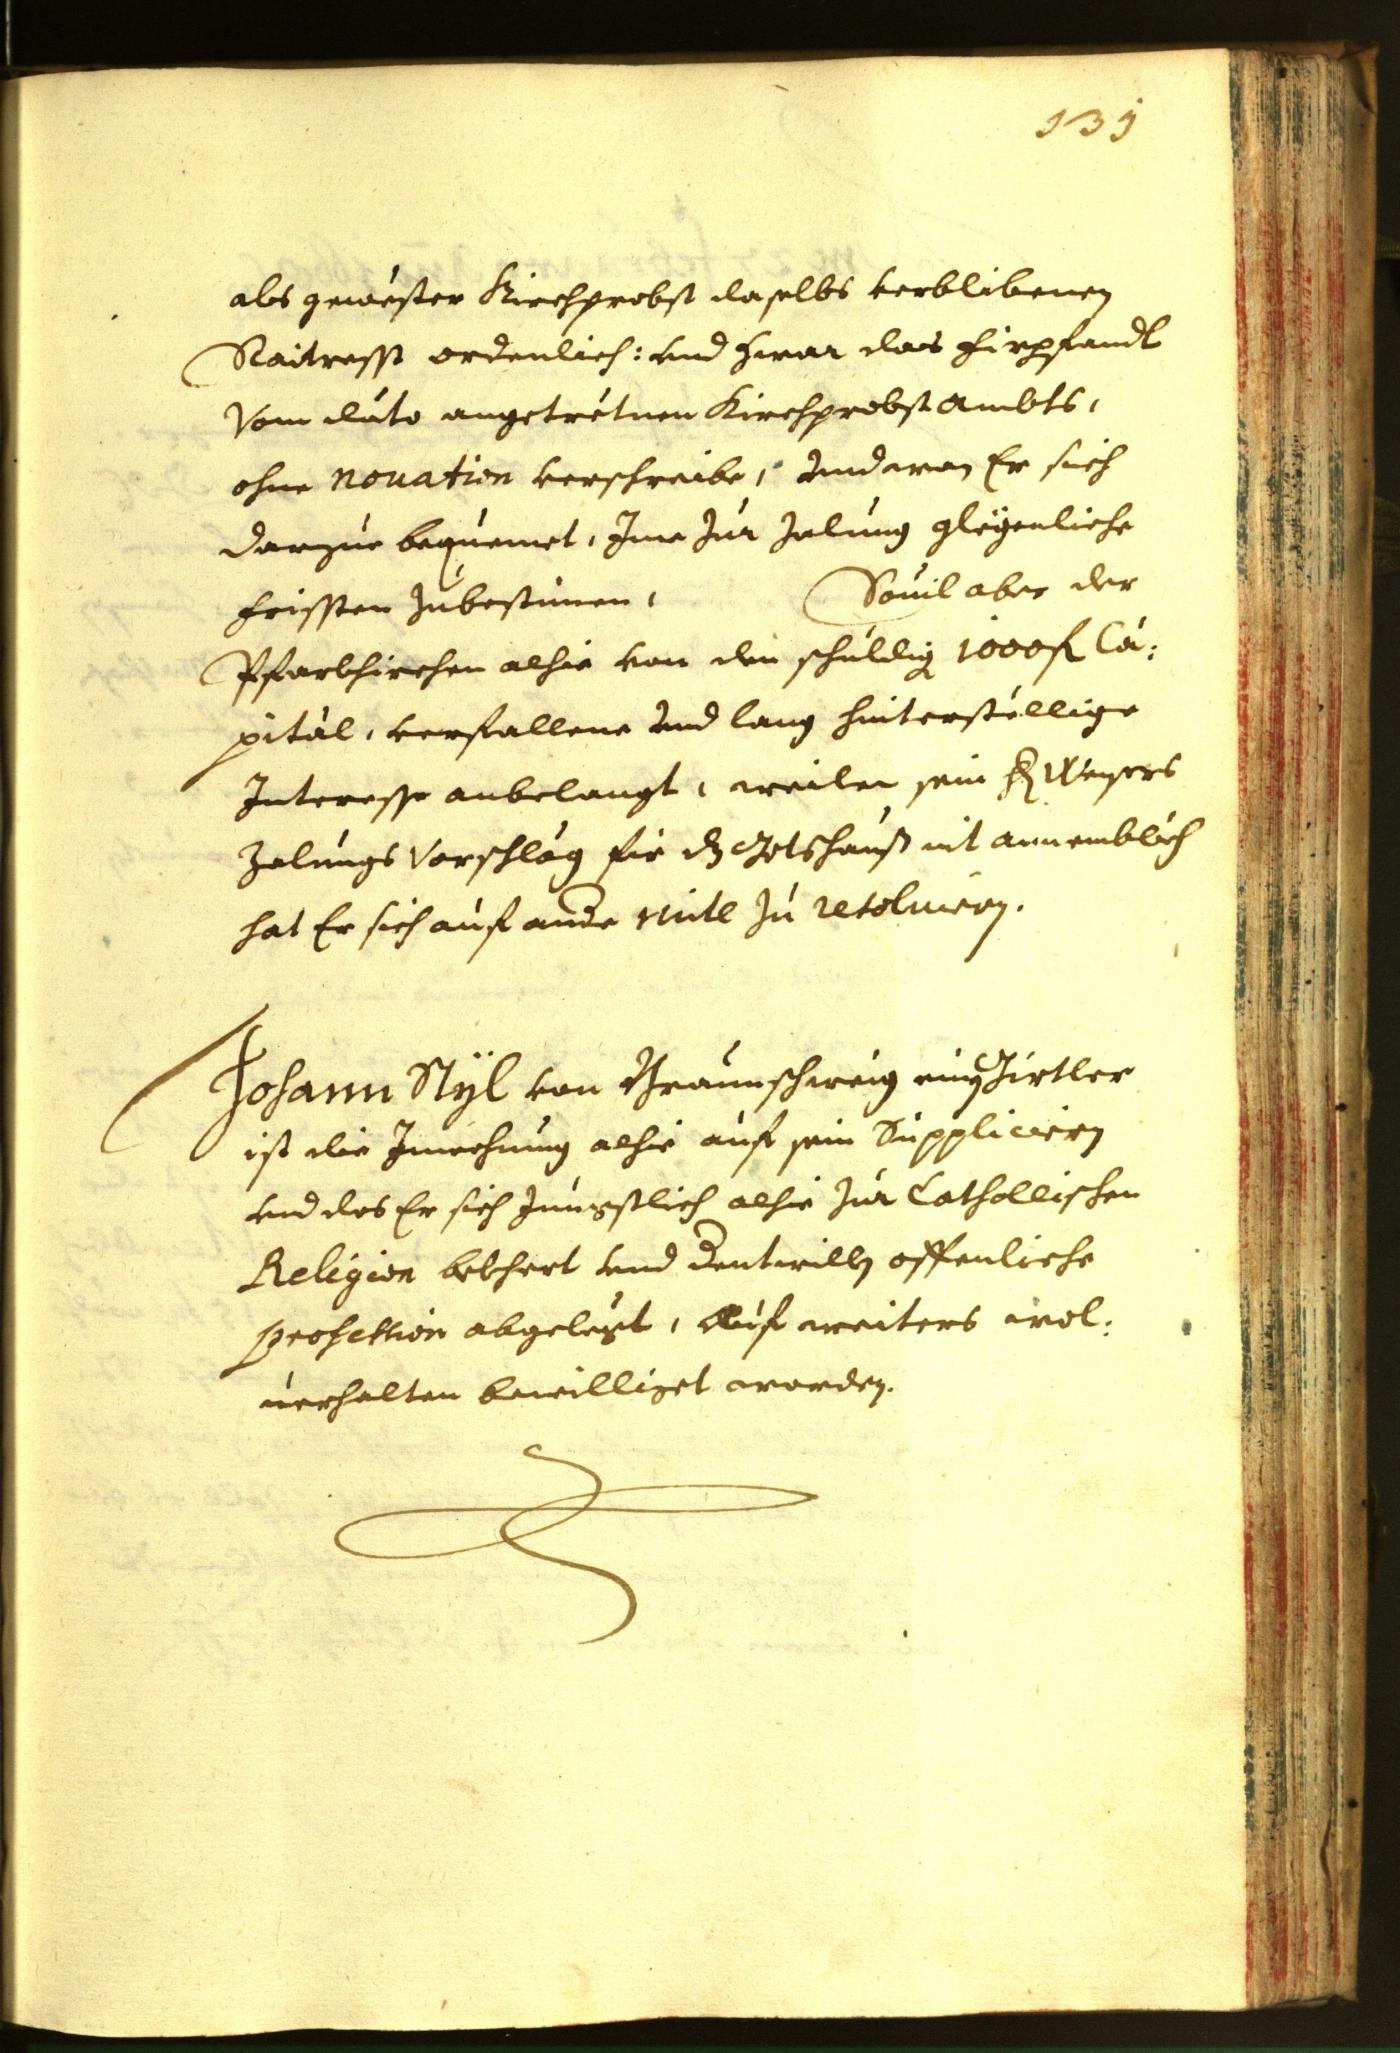 131
als gewester Kirchprobst daselbs verblibenen
Raitresst ordenlich: und zwar das Firpfandt
vom dato angetretnen Kirchprobst Ambts,
ohne novation verschreibe, und wan Er sich
darzue bequemet, Ime zur zalung glegenliche
frissten zubestimen, Souil aber der
Pfarkhirchen alhie von den schuldig 1000 fl Ca:
pital, verfallene und lang hinterstellige
Interesse anbelangt, weilen sein H: Weysers
Zalungs Vorschlag für dz Gotshauß nit annemblich
hat Er sich auf ande mitl zu resolviern.
Johann Stÿl von Braunschweig ein Girtler
ist die Inwohnung alhie auf sein Suppliciern
und das Er sich Jüngstlich alhie zur Catholischen
Religion bekhert und dentwilln offenliche
profession abgelegt, auf weiters wol:
uerhalten bewilliget worden.